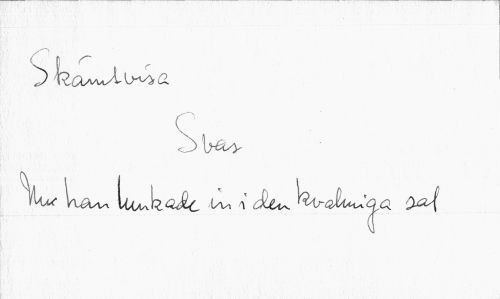 Skämtvisa
Svar
han lunkade in i den kvalmiga sal